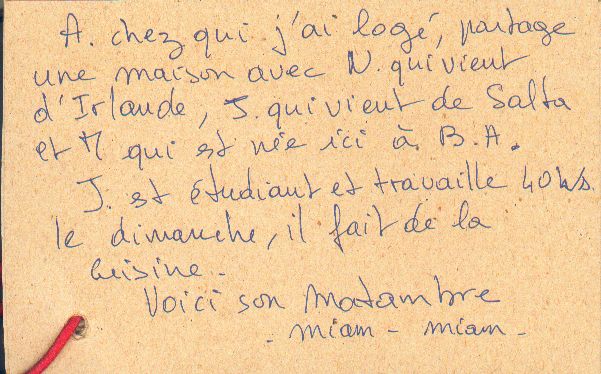 A. chez qui j'ai logé, partage
une maison avec N. qui vient
d'Irlande, J. qui vient de Salta
et M qui est née ici à B.A.
J. est étudiant et travaille 40hs.
le dimanche, il fait de la
cuisine.
Voici son Matambre
- miam - miam -